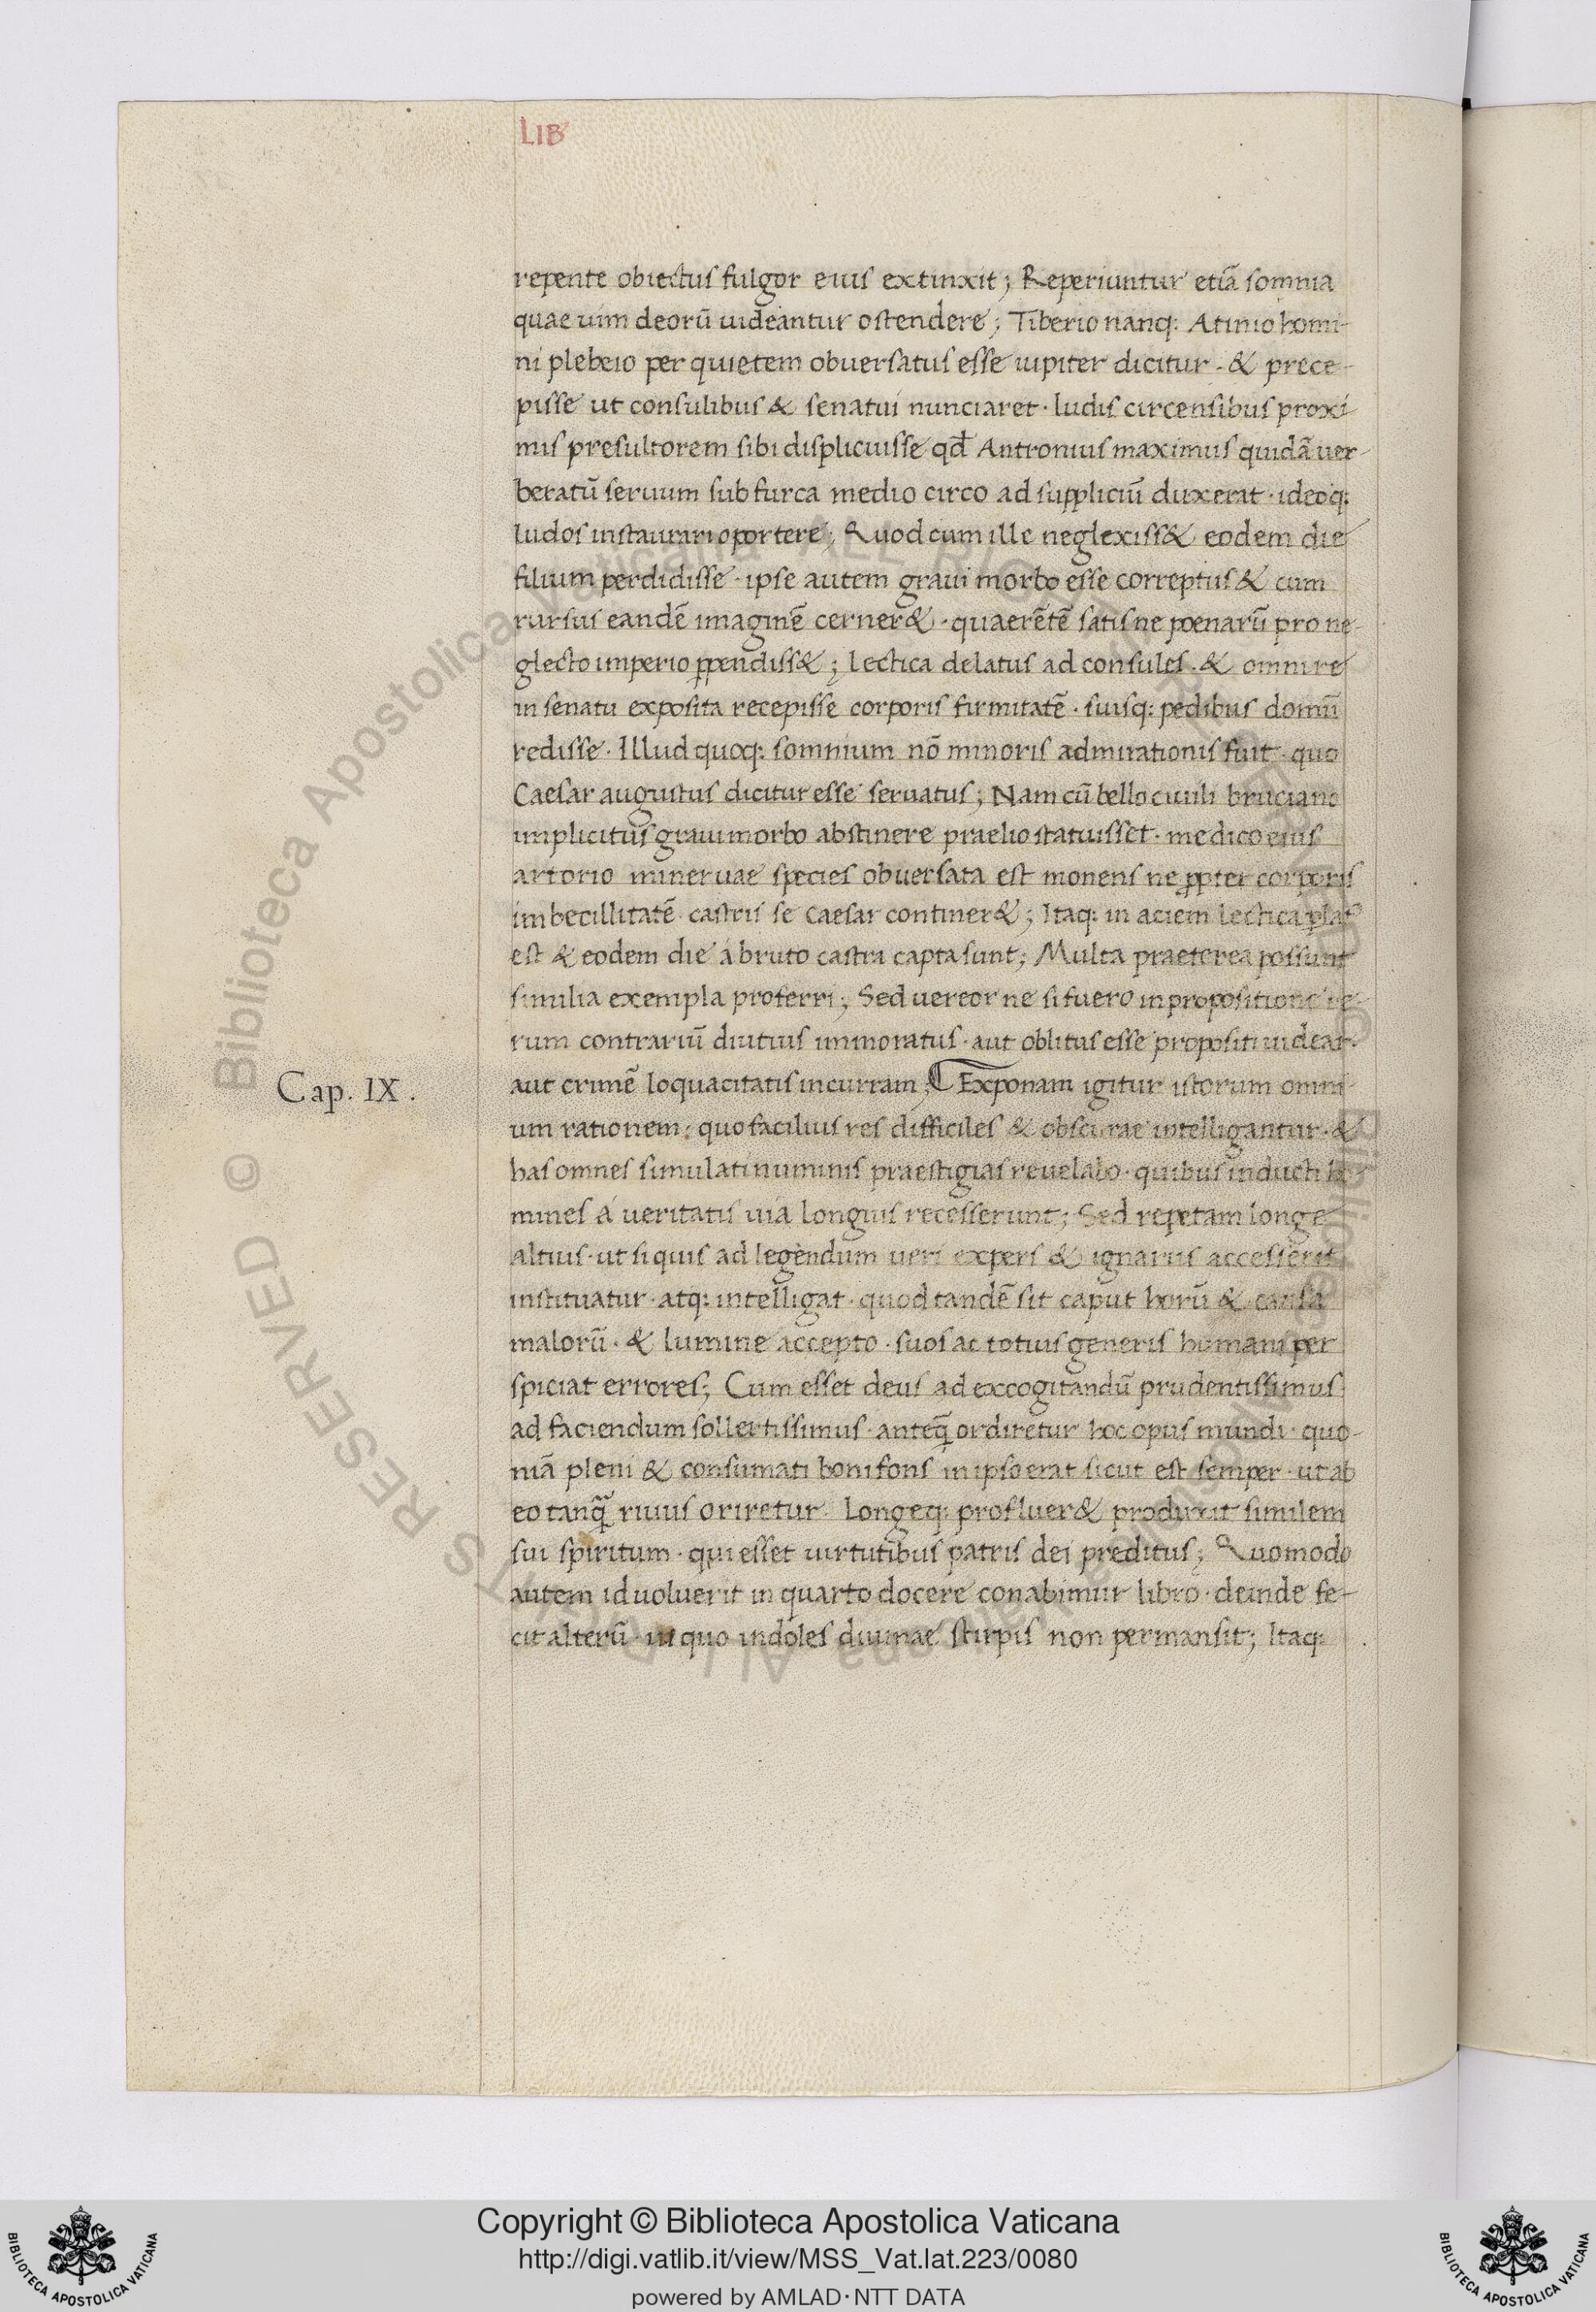 LIB
repente obiectus fulgor eius extinxit; Reperiuntur etiā somnia
quae uim deorū uideantur ostendere; Tiberio nanq: Atinio homi-
ni plebeio per quietem obuersatus esse iupiter dicitur · & prece-
pisse ut consulibus & senatui nunciaret · ludis circensibus proxi-
mis presultorem sibi displicuisse qđ Antronius maximus quidā uer-
beratū seruum sub furca medio circo ad suppliciū duxerat · ideoq:
ludos instaurari oportere; Quod cum ille neglexiss& eodem die
filium perdidisse · ipse autem graui morbo esse correptus & cum
rursus eandē imaginē cerner& · quaerētē satis ne poenarū pro ne-
glecto imperio ꝑpendiss&; lectica delatus ad consules · & omni re
in senatu exposita recepisse corporis firmitatē · suisq: pedibus domū
redisse · Illud quoq: somnium nō minoris admirationis fuit · quo
Caesar augustus dicitur esse seruatus; Nam cū bello ciuili bruciano
implicitus graui morbo abstinere praelio statuisset · medico eius
artorio mineruae species obuersata est monens ne ꝓpter corporis
imbecillitatē castris se Caesar continer&; Itaq: in aciem lectica plat9
est & eodem die á bruto castra capta sunt; Multa praeterea possunt
similia exempla proferri; Sed uereor ne si fuero in propositione re-
rum contrariū diutius immoratus · aut oblitus esse propositi uidear ·
Cap. IX.
aut crimē loquacitatis incurram; Exponam igitur istorum omni-
um rationem: quo facilius res difficiles & obscurae intelligantur · &
has omnes simulati numinis praestigias reuelabo · quibus inducti ho
mines á ueritatis uia longius recesserunt; Sed repetam longe
altius · ut si quis ad legendum ueri expers & ignarus accesserit
instituatur · atq: intelligat · quod tandē sit caput horū & causa
malorū · & lumine accepto · suos ac totius generis humani per
spiciat errores; Cum esset deus ad excogitandū prudentissimus
ad faciendum sollertissimus · anteq̄ ordiretur hoc opus mundi · quo-
niā pleni & consumati boni fons in ipso erat sicut est semper · ut ab
eo tanq̄ riuus oriretur · longeq: profluer& produxit similem
sui spiritum · qui esset uirtutibus patris dei preditus; Quomodo
autem id uoluerit in quarto docere conabimur libro · deinde fe-
cit alterū · in quo indoles diuinae stirpis non permansit; Itaq:
Copyright © Biblioteca Apostolica Vaticana
http://digi.vatlib.it/view/MSS_Vat.lat.223/0080
powered by AMLAD·NTT DATA